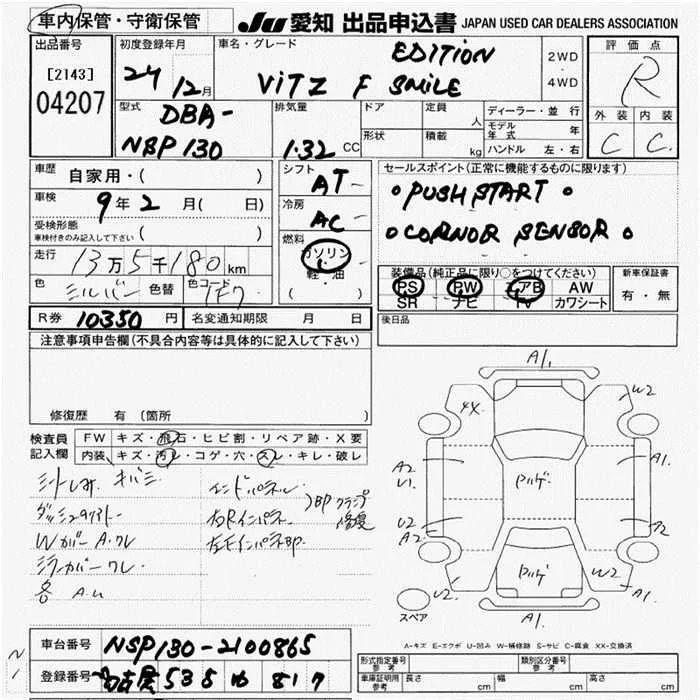 車内保管・守衛保管 JU 愛知 出品申込書 JAPAN USED CAR DEALERS ASSOCIATION
出品番号
[2143]
04207
初度登録年月
24 12月
車名・グレード
EDITION
VITZ F SMILE
2WD
・
4WD
評価点
R
外装 内装
C C.
型式
DBA-
NSP130
排気量
1.32 CC
ドア
形状
定員 人
積載 kg
ディーラー・並行
モデル年式 年
ハンドル 左・右
車歴 自家用・( )
車検 9年2月( 日)
受検形態
車検付きのみ記入して下さい ( )
走行 13万5千180km
色 シルバー 色替 色コード 1F7
シフト AT-
冷房 AC-
燃料
ガソリン
軽・油
( )
セールスポイント(正常に機能するものに限ります)
・PUSH START・
・CORNOR SENSOR・
装備品(純正品に限り○をつけてください)
PS PW エアB AW
SR ナビ TV カワシート
新車保証書
有・無
R券 10350円 名変通知期限 月 日
後日品
注意事項申告欄(不具合内容等は具体的に記入して下さい)
修復歴 有(箇所 )
検査員記入欄
FW キズ・飛石・ヒビ割・リペア跡・X要
内装 キズ・汚レ・コゲ・穴・スレ・キレ・破レ
Wカバー A.クレ
ミラーカバー クレ
各 A.U
エンドパネル
右Rインパネ
左FインパネBP
BP クランプ修復
A1.
W2
XX.
A2
U1
A1.
パルゲ
U2
A2
A2
パルゲ
U2
W2
A1.
A1.
スペア
A-キズ E-エクボ U-凹み W-補修跡 S-サビ C-腐食 XX-交換済
車台番号 NSP130-2100865
登録番号 名古屋 535 ゆ 817
型式指定番号参考
類別区分番号参考
車庫証明用参考 長さ cm 幅 cm 高さ cm